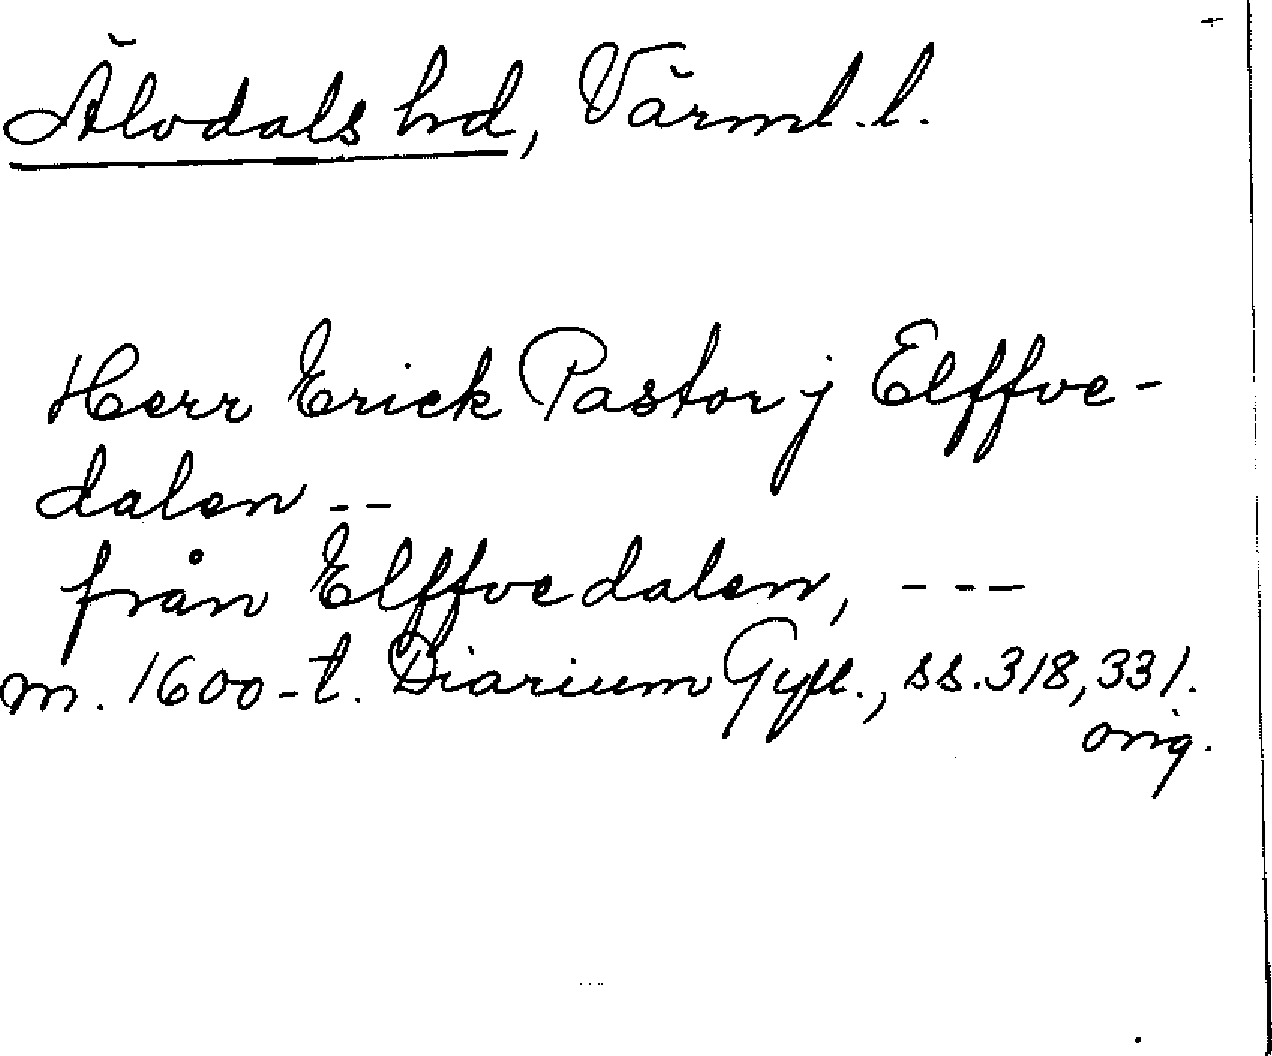 Älvdals hd, Värml. l.
Herr Erick Pastor j Elffve-
dalen --
från Elffvedalen, ---
m. 1600-t. Diarium Gyll., ss. 318, 331.
orig.